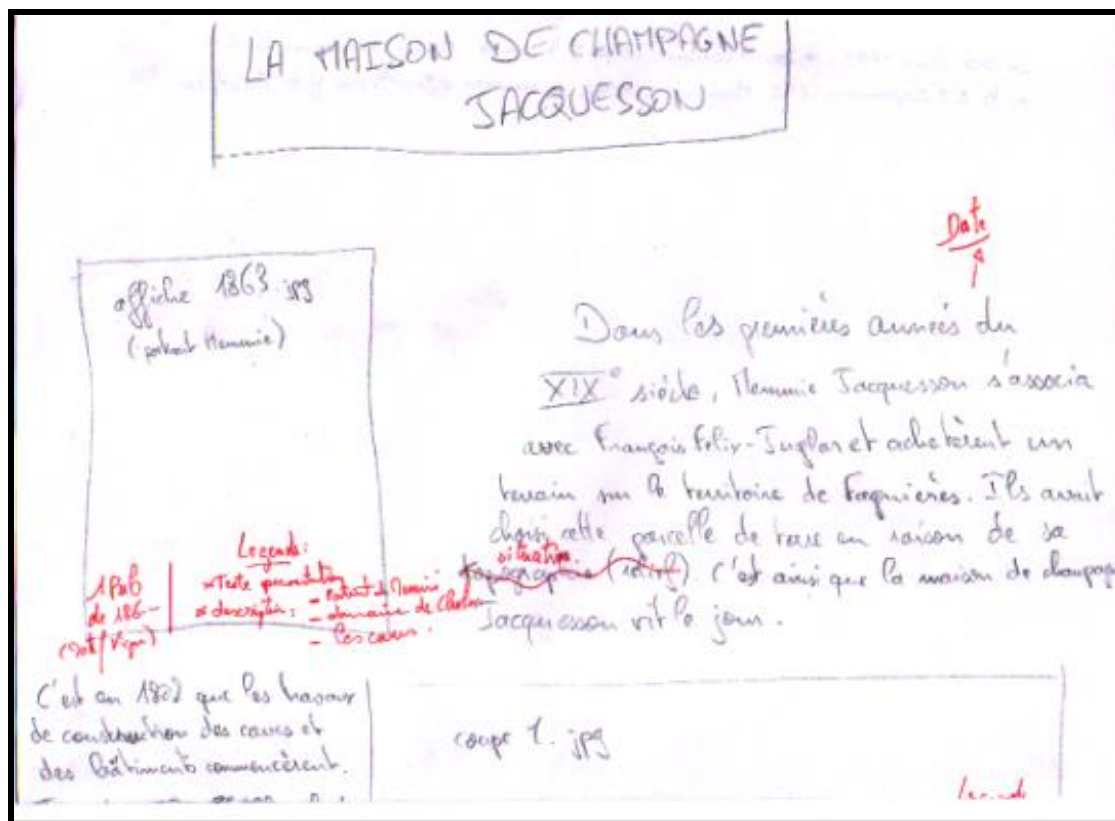 LA MAISON DE CHAMPAGNE
JACQUESSON
Date
affiche 1863 jpg
(portrait Memmie)
Dans les premières années du
XIX° siècle, Memmie Jacquesson s'associa
avec François Felix-Juglar et achetèrent un
terrain sur le territoire de Fagnières. Ils avait
choisi cette parcelle de terre en raison de sa
situation.
topographie (relief) C'est ainsi que la maison de champagne
Jacquesson vit le jour.
Legende:
Texte presentation
description: - Portrait de Memmie
- domaine de
- Les caves.
1 Pub
de 186-
C'est en 1802 que les travaux
de construction des caves et
des bâtiments commencèrent.
coupe 1. jpg